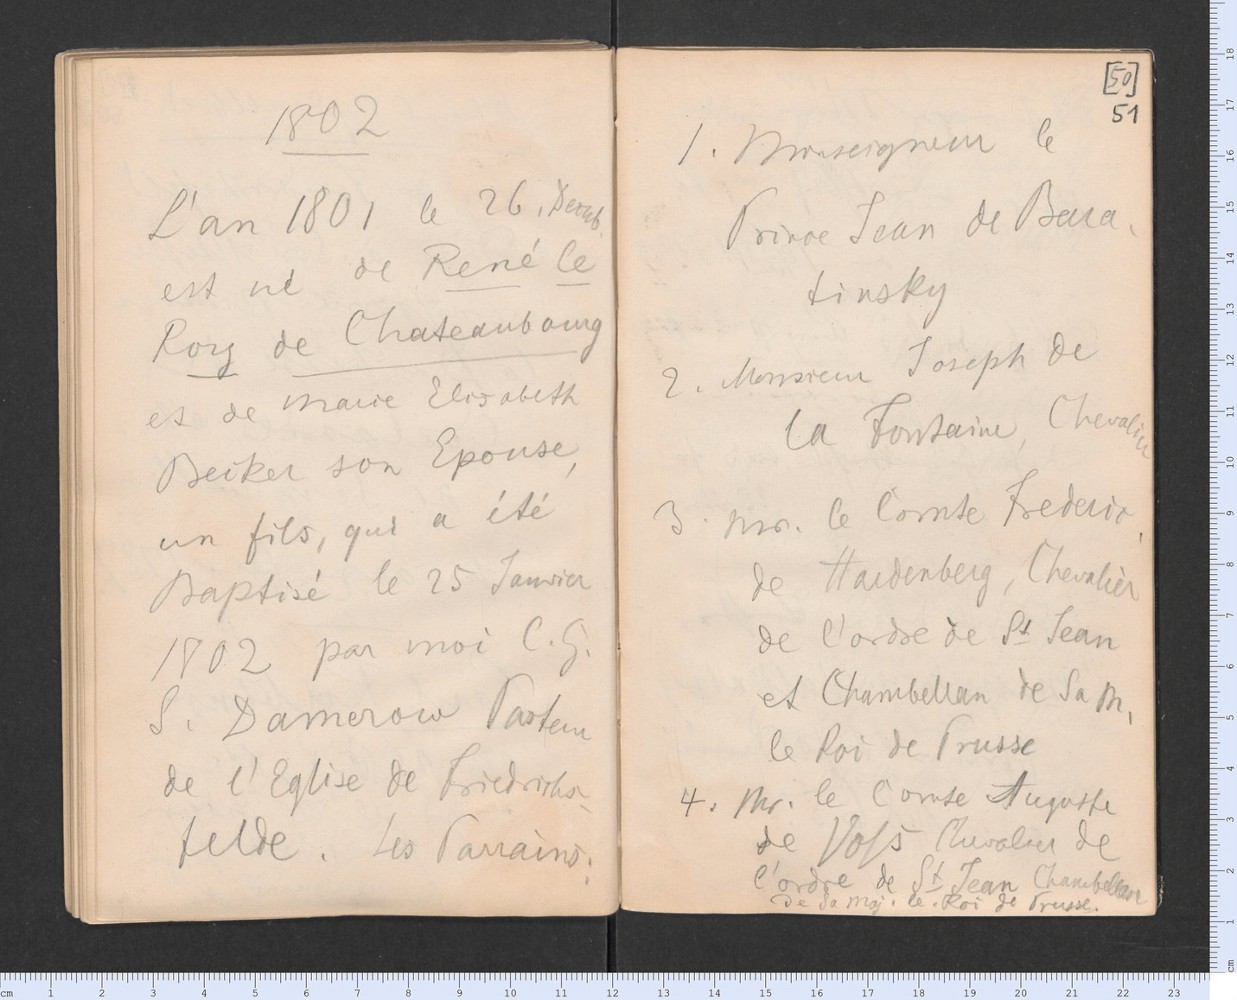 1802
L'an 1801 le 26. Decemb.
est né de René le
Roy de Chateaubourg
et de Marie Elisabeth
Becker son Epouse,
un fils, qui a été
Baptisé le 25 Janvier
1802 par moi C. G.
S. Damerow Pasteur
de l'Eglise de Friedrichs-
felde. Les Parrains:
[50]
51
1. Monseigneur le
Prince Jean de Bara-
tinsky
2. Monsieur Joseph de
la Fontaine, Chevalier
3. Mr. le Comte Frederic
de Hardenberg, Chevalier
de l'ordre de St Jean
et Chambellan de Sa M.
le Roi de Prusse
4. Mr. le Comte Auguste
de Voſs Chevalier de
l'ordre de St Jean Chambellan
de Sa Maj. le Roi de Prusse.